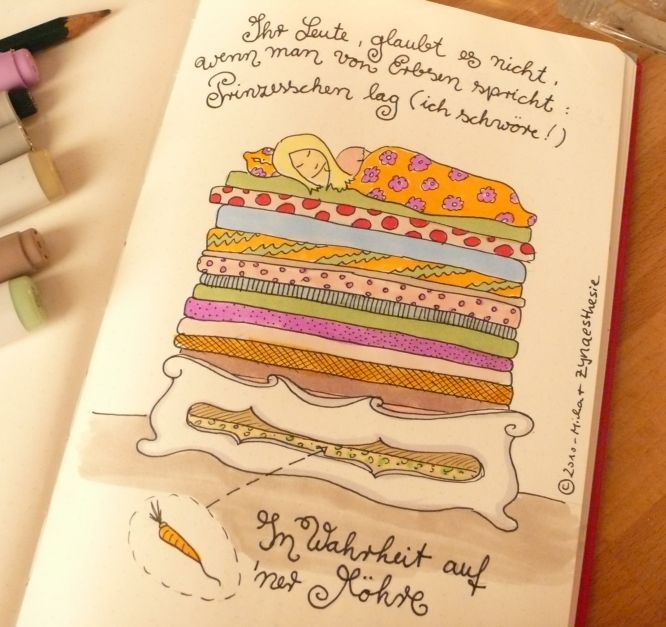 Ihr Leute, glaubt es nicht,
wenn man von Erbsen spricht:
Prinzesschen lag (ich schwöre!)
In Wahrheit auf
'ner Möhre
© 2010 - Micha + zynaesthesie